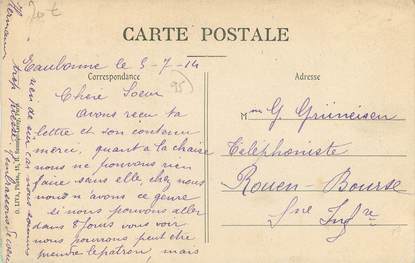 20 €
CARTE POSTALE
Eaubonne le 5-7-14
Correspondance
Adresse
95
Chère Soeur
Avons reçu ta
lettre et son contenu
merci, quant à la chaise
nous ne pouvons rien
faire sans elle, chez nous
nous n'avons ce genre
si nous pouvons aller
dans 8 jours vous voir
nous pourrons peut être
prendre le patron, mais
rien de sûr car nous sommes
trop pressés
Hermann
Mme G. Grüneisen
Téléphoniste
Rouen-Bourse
Sne Infre